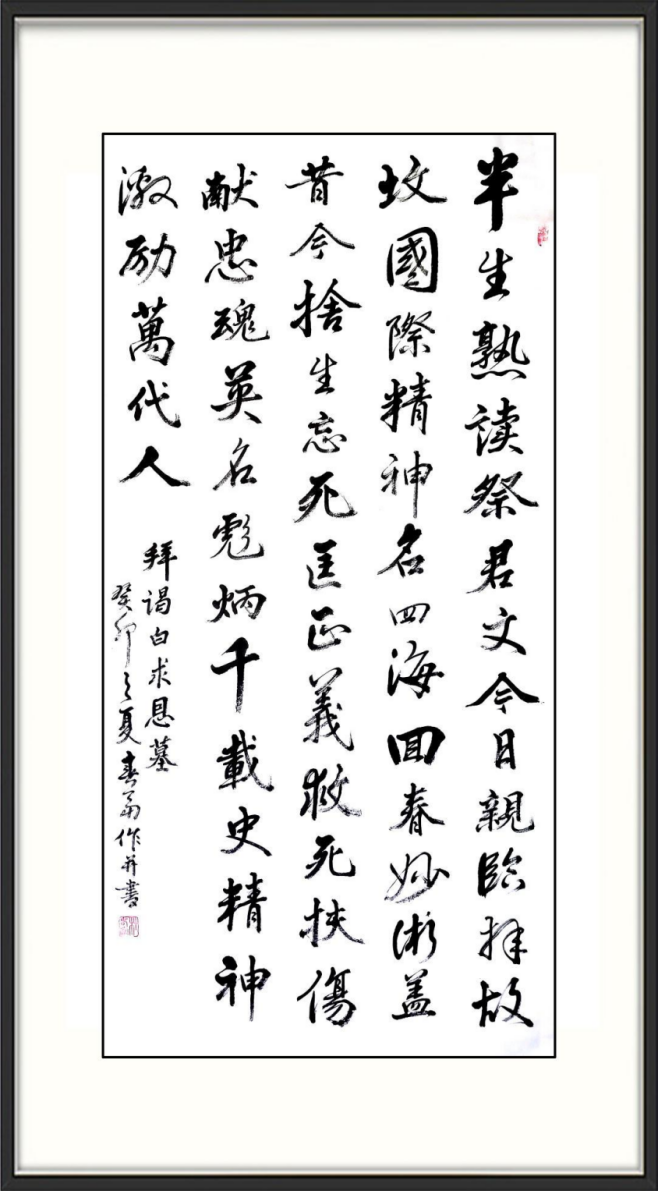 半生熟读祭君文今日親臨拜故
坟國際精神名四海回春妙術蓋
昔今捨生忘死匡正義救死扶傷
献忠魂英名彪炳千載史精神
激励萬代人
拜谒白求恩墓
癸卯之夏春雨作并書